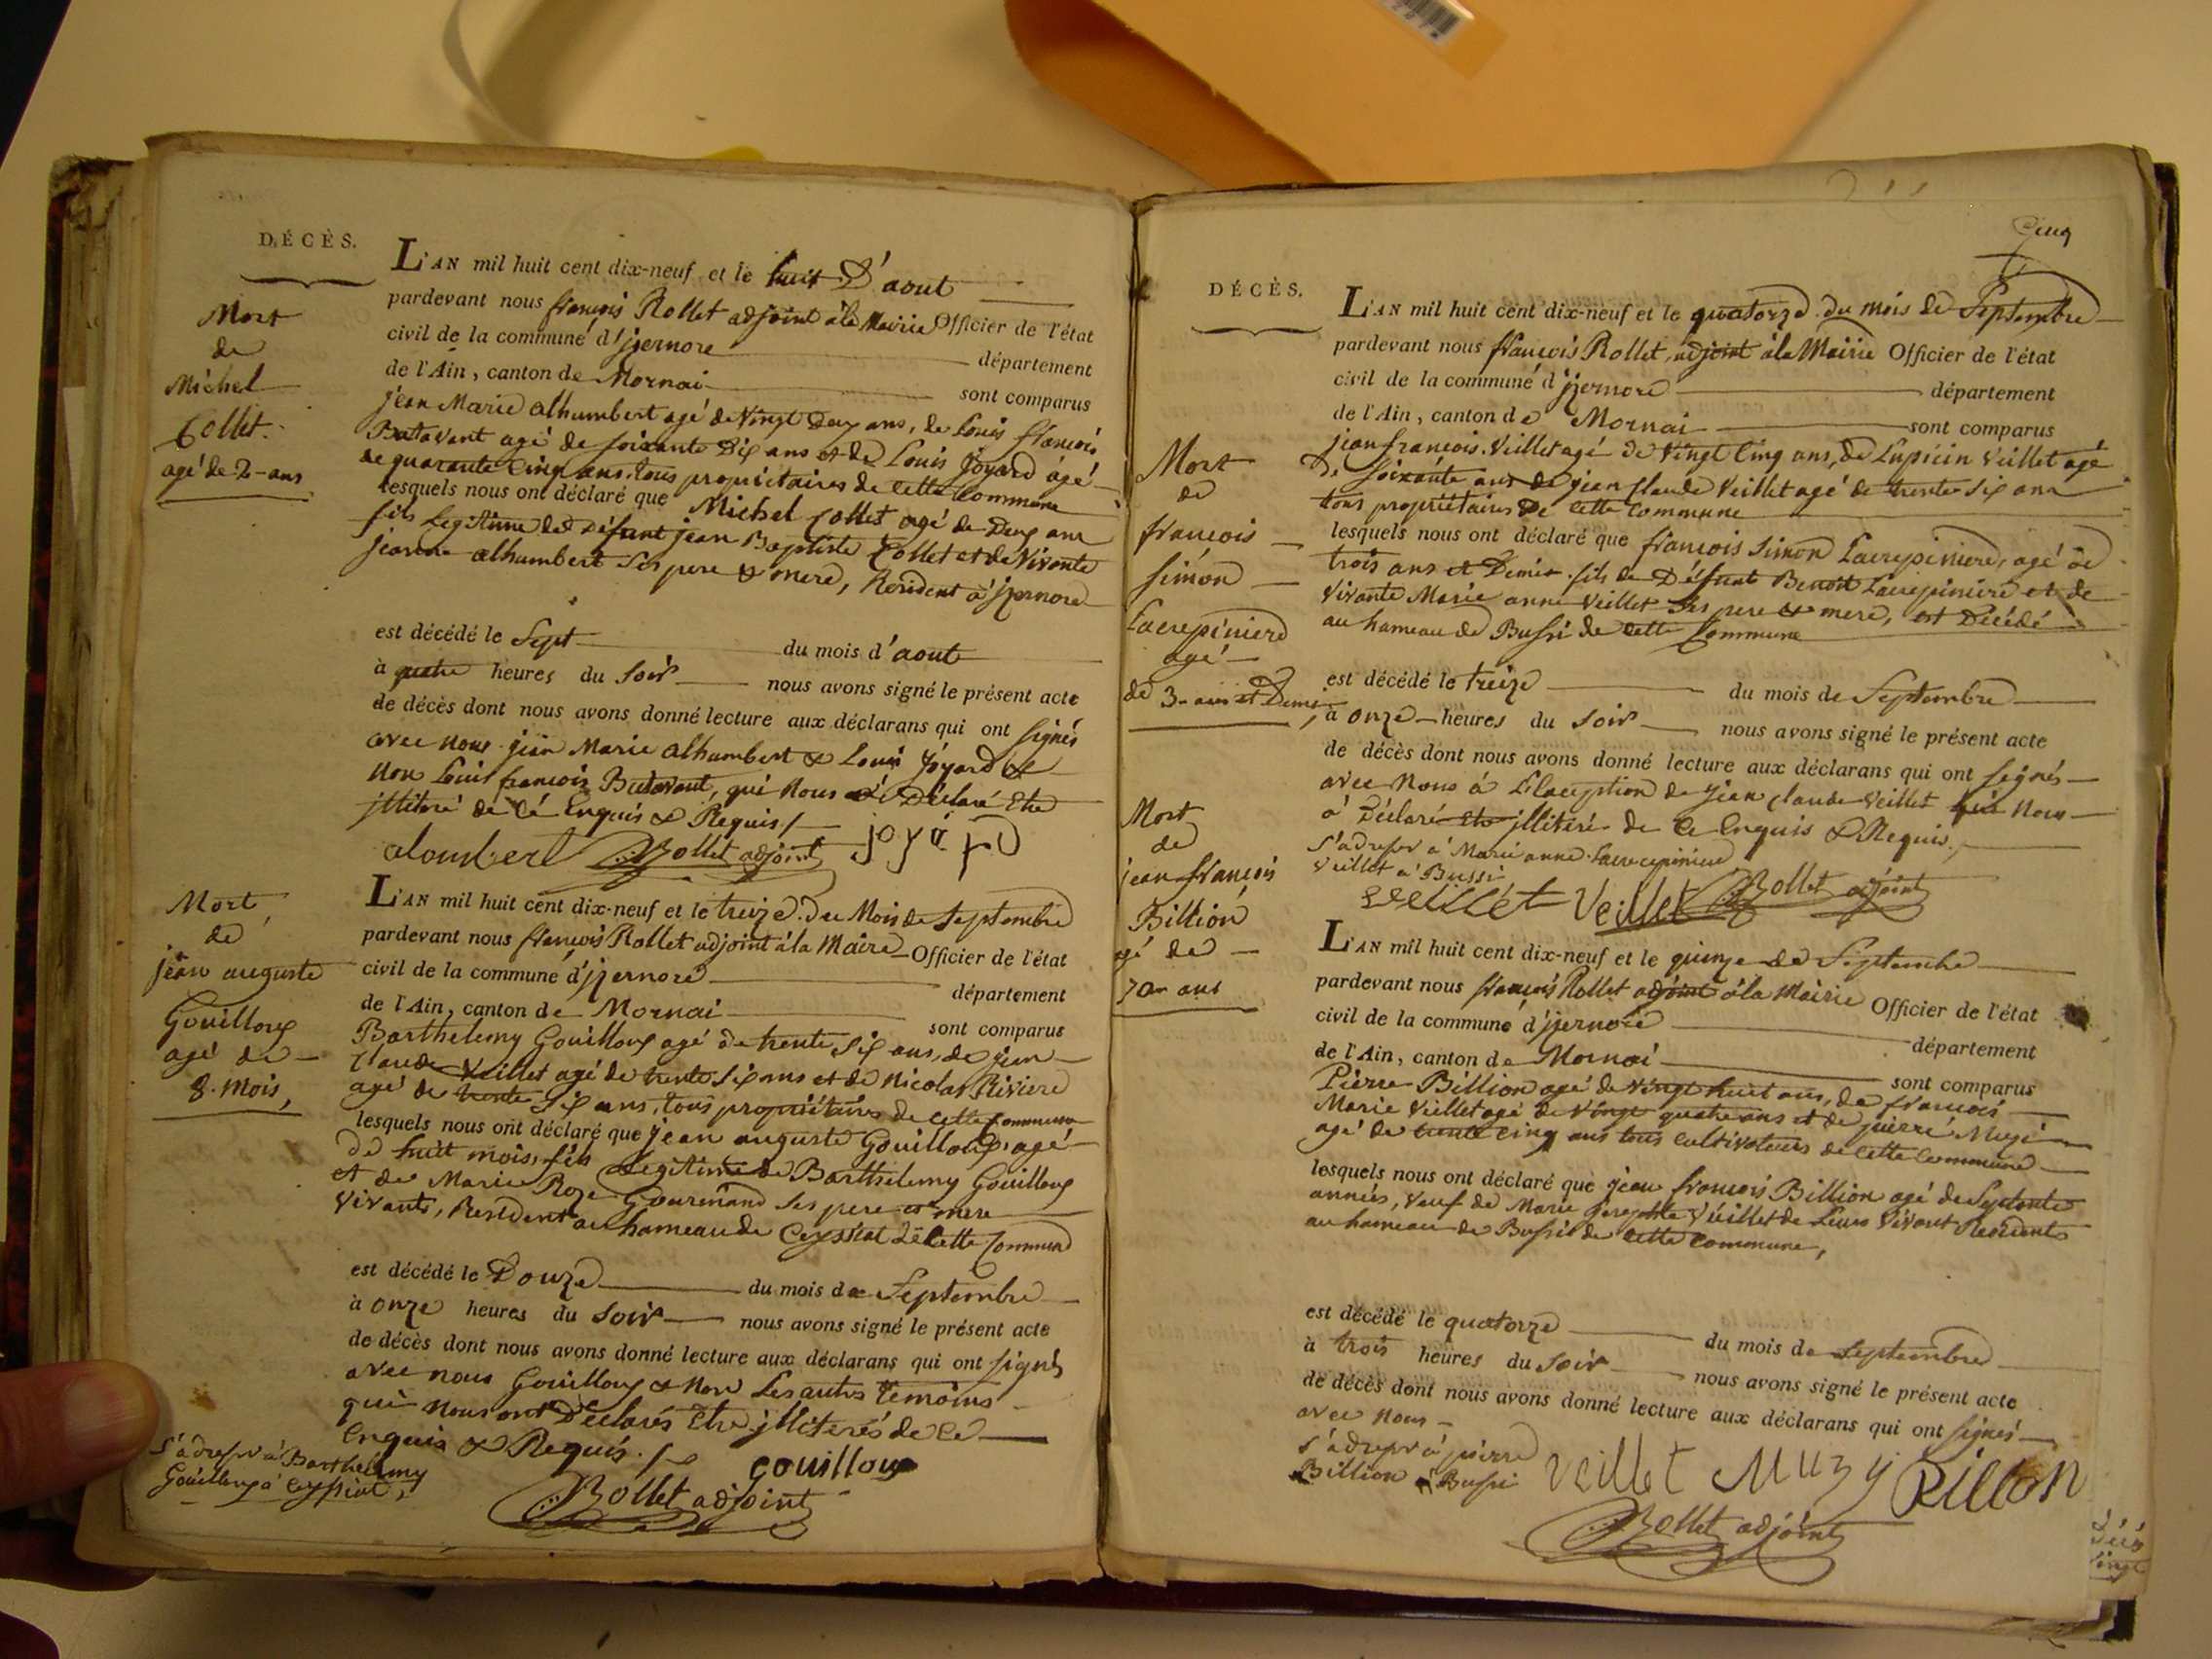 DÉCÈS.
Mort
de
Michel
Collet.
agé de 2 ans
L'AN mil huit cent dix-neuf et le huit D'aout
pardevant nous françois Rollet adjoint àla Mairie Officier de l'état
civil de la commune d'jzernore département
de l'Ain, canton de Mornai sont comparus
jean Marie alhumbert agé de Vingt Deux ans, de Louis françois
Butavant agé de soixante Dix ans et de Louis joyard agé
de quarante Cinq ans, tous propriétaires de cette Commune
lesquels nous ont déclaré que Michel Collet agé de Deux ans
fils Legitime de Défunt jean Baptiste Collet et de Vivante
jeanne alhumbert Ses pere & mere, Résident à jzernore
est décédé le Sept du mois d'aout
à quatre heures du Soir nous avons signé le présent acte
de décès dont nous avons donné lecture aux déclarans qui ont signés
avec nous jean Marie alhumbert & Louis joyard &
non Louis françois Butavant, qui nous a Déclaré Etre
jllitéré de Cé Enquis & Requis /
alombert Rollet adjoint joyard
Mort
de
jean auguste
Gouilloux
agé de
8. Mois,
L'AN mil huit cent dix-neuf et le treize. du Mois de Septembre
pardevant nous françois Rollet adjoint àla Maire Officier de l'état
civil de la commune d'jzernore département
de l'Ain, canton de Mornai sont comparus
Barthelemy Gouilloux agé de trente Six ans, de jean
Claude Veillet agé de trente Six ans et de Nicolas Riviere
agé de trente Six ans, tous propriétaires de cette Commune
lesquels nous ont déclaré que jean auguste Gouilloux, agé
de huit mois, fils Legitime de Barthelemy Gouilloux
et de Marie Roze Gourmand Ses pere et mere
Vivants, Résident au hameau de Ceyssiat de Cette Commune
est décédé le Douze du mois de Septembre
à onze heures du Soir nous avons signé le présent acte
de décès dont nous avons donné lecture aux déclarans qui ont signés
avec nous Gouilloux & non Les autres temoins
qui nous ont Déclarés Etre jlliterés de Ce
Enquis & Requis. /
S'adresser à Barthélemy
Gouilloux à Ceyssiat,
gouilloux
Rollet adjoint
Cinq
DÉCÈS.
Mort
de
françois
Simon
Lacrepiniere
agé
de 3 ans et Demi,
L'AN mil huit cent dix-neuf et le quatorze. du mois de Septembre
pardevant nous françois Rollet, adjoint àla Mairie Officier de l'état
civil de la commune d'jzernore département
de l'Ain, canton de Mornai sont comparus
jean françois. Veillet agé de Vingt Cinq ans, de Lupicin Veillet agé
de soixante ans de jean Claude Veillet agé de trente Six ans
tous propriétaires De cette Commune
lesquels nous ont déclaré que françois Simon Lacrepiniere, agé de
trois ans et Demis. fils de Défunt Benoit Lacrepiniere et de
Vivante Marie anne Veillet Ses pere & mere, est Décédé
au hameau de Bussi de cette Commune
est décédé le treize du mois de Septembre
à onze heures du Soir nous avons signé le présent acte
de décès dont nous avons donné lecture aux déclarans qui ont signés
avec Nous à L'Exception de jean Claude Veillet qui Nous
à Déclaré Etre jllitéré de Ce Enquis & Requis.
S'adresser à Marie anne Lacrepiniere
Veillet à Bussi
Veillet Veillet Rollet adjoint
Mort
de
jean françois
Billion
agé de
70 ans
L'AN mil huit cent dix-neuf et le quinze de Septembre
pardevant nous françois Rollet adjoint àla Mairie Officier de l'état
civil de la commune d'jzernore département
de l'Ain, canton de Mornai sont comparus
Pierre Billion agé de vingt huit ans, de françois
Marie Veillet agé de Vingt quatre ans et de pierre Muzi
agé de trente Cinq ans tous Cultivateurs de cette Commune
lesquels nous ont déclaré que jean françois Billion agé de Septente
années, Veuf de Marie josephte Veillet de Leurs Vivant Residents
au hameau de Bussi de cette Commune,
est décédé le quatorze du mois de Septembre
à trois heures du Soir nous avons signé le présent acte
de décès dont nous avons donné lecture aux déclarans qui ont signés
avec Nous
S'adresser à pierre
Billion à Bussi
Veillet Muzy Billon
Rollet adjoint